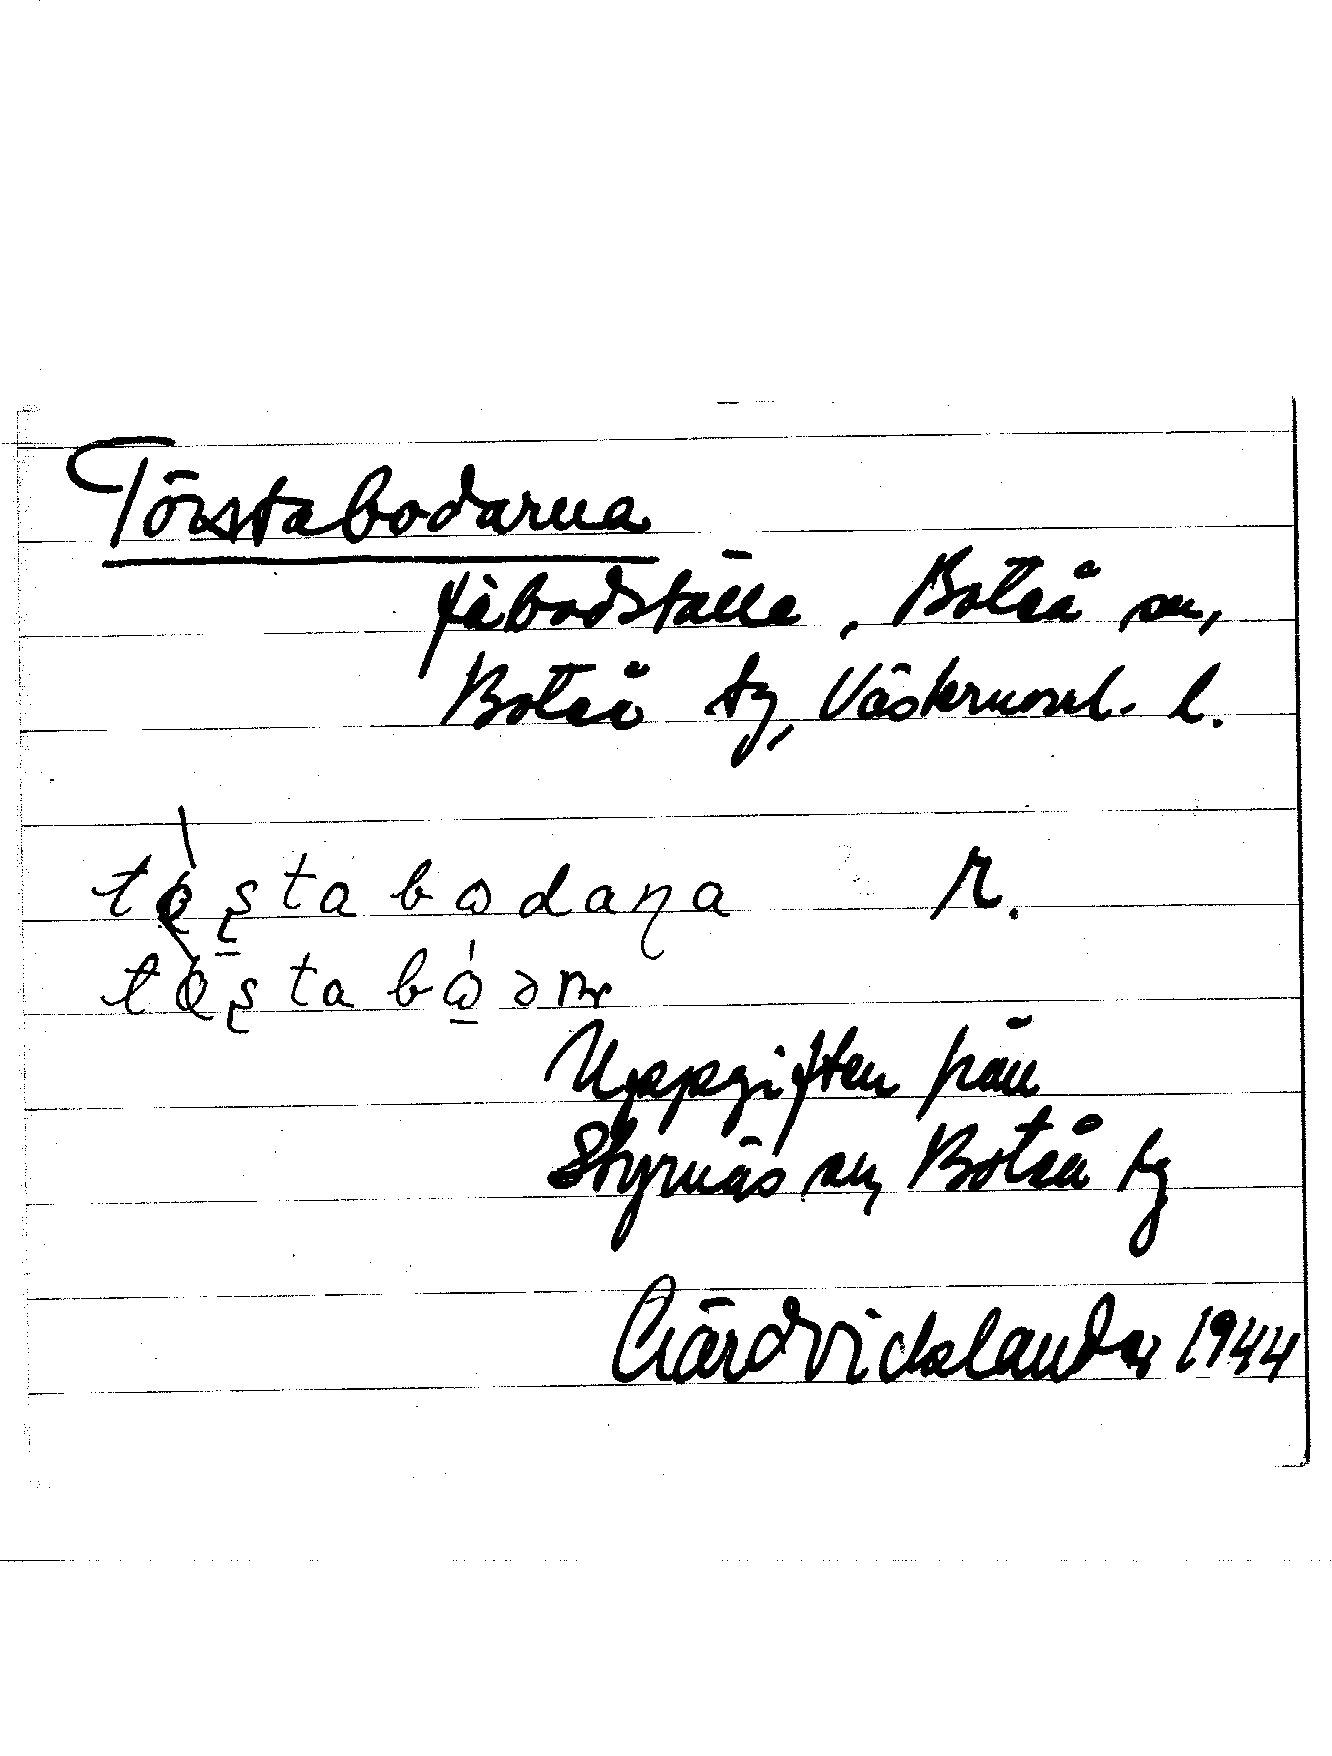 Törstabodarna
fäbodställe, Boteå sn,
Boteå tg, Västernorrl. l.
tø̀ʂtabωdaɳa r.
tø̀ʂtabώəm
Uppgiften från
Styrnäs sn, Boteå tg
Gärd Vicklander 1944